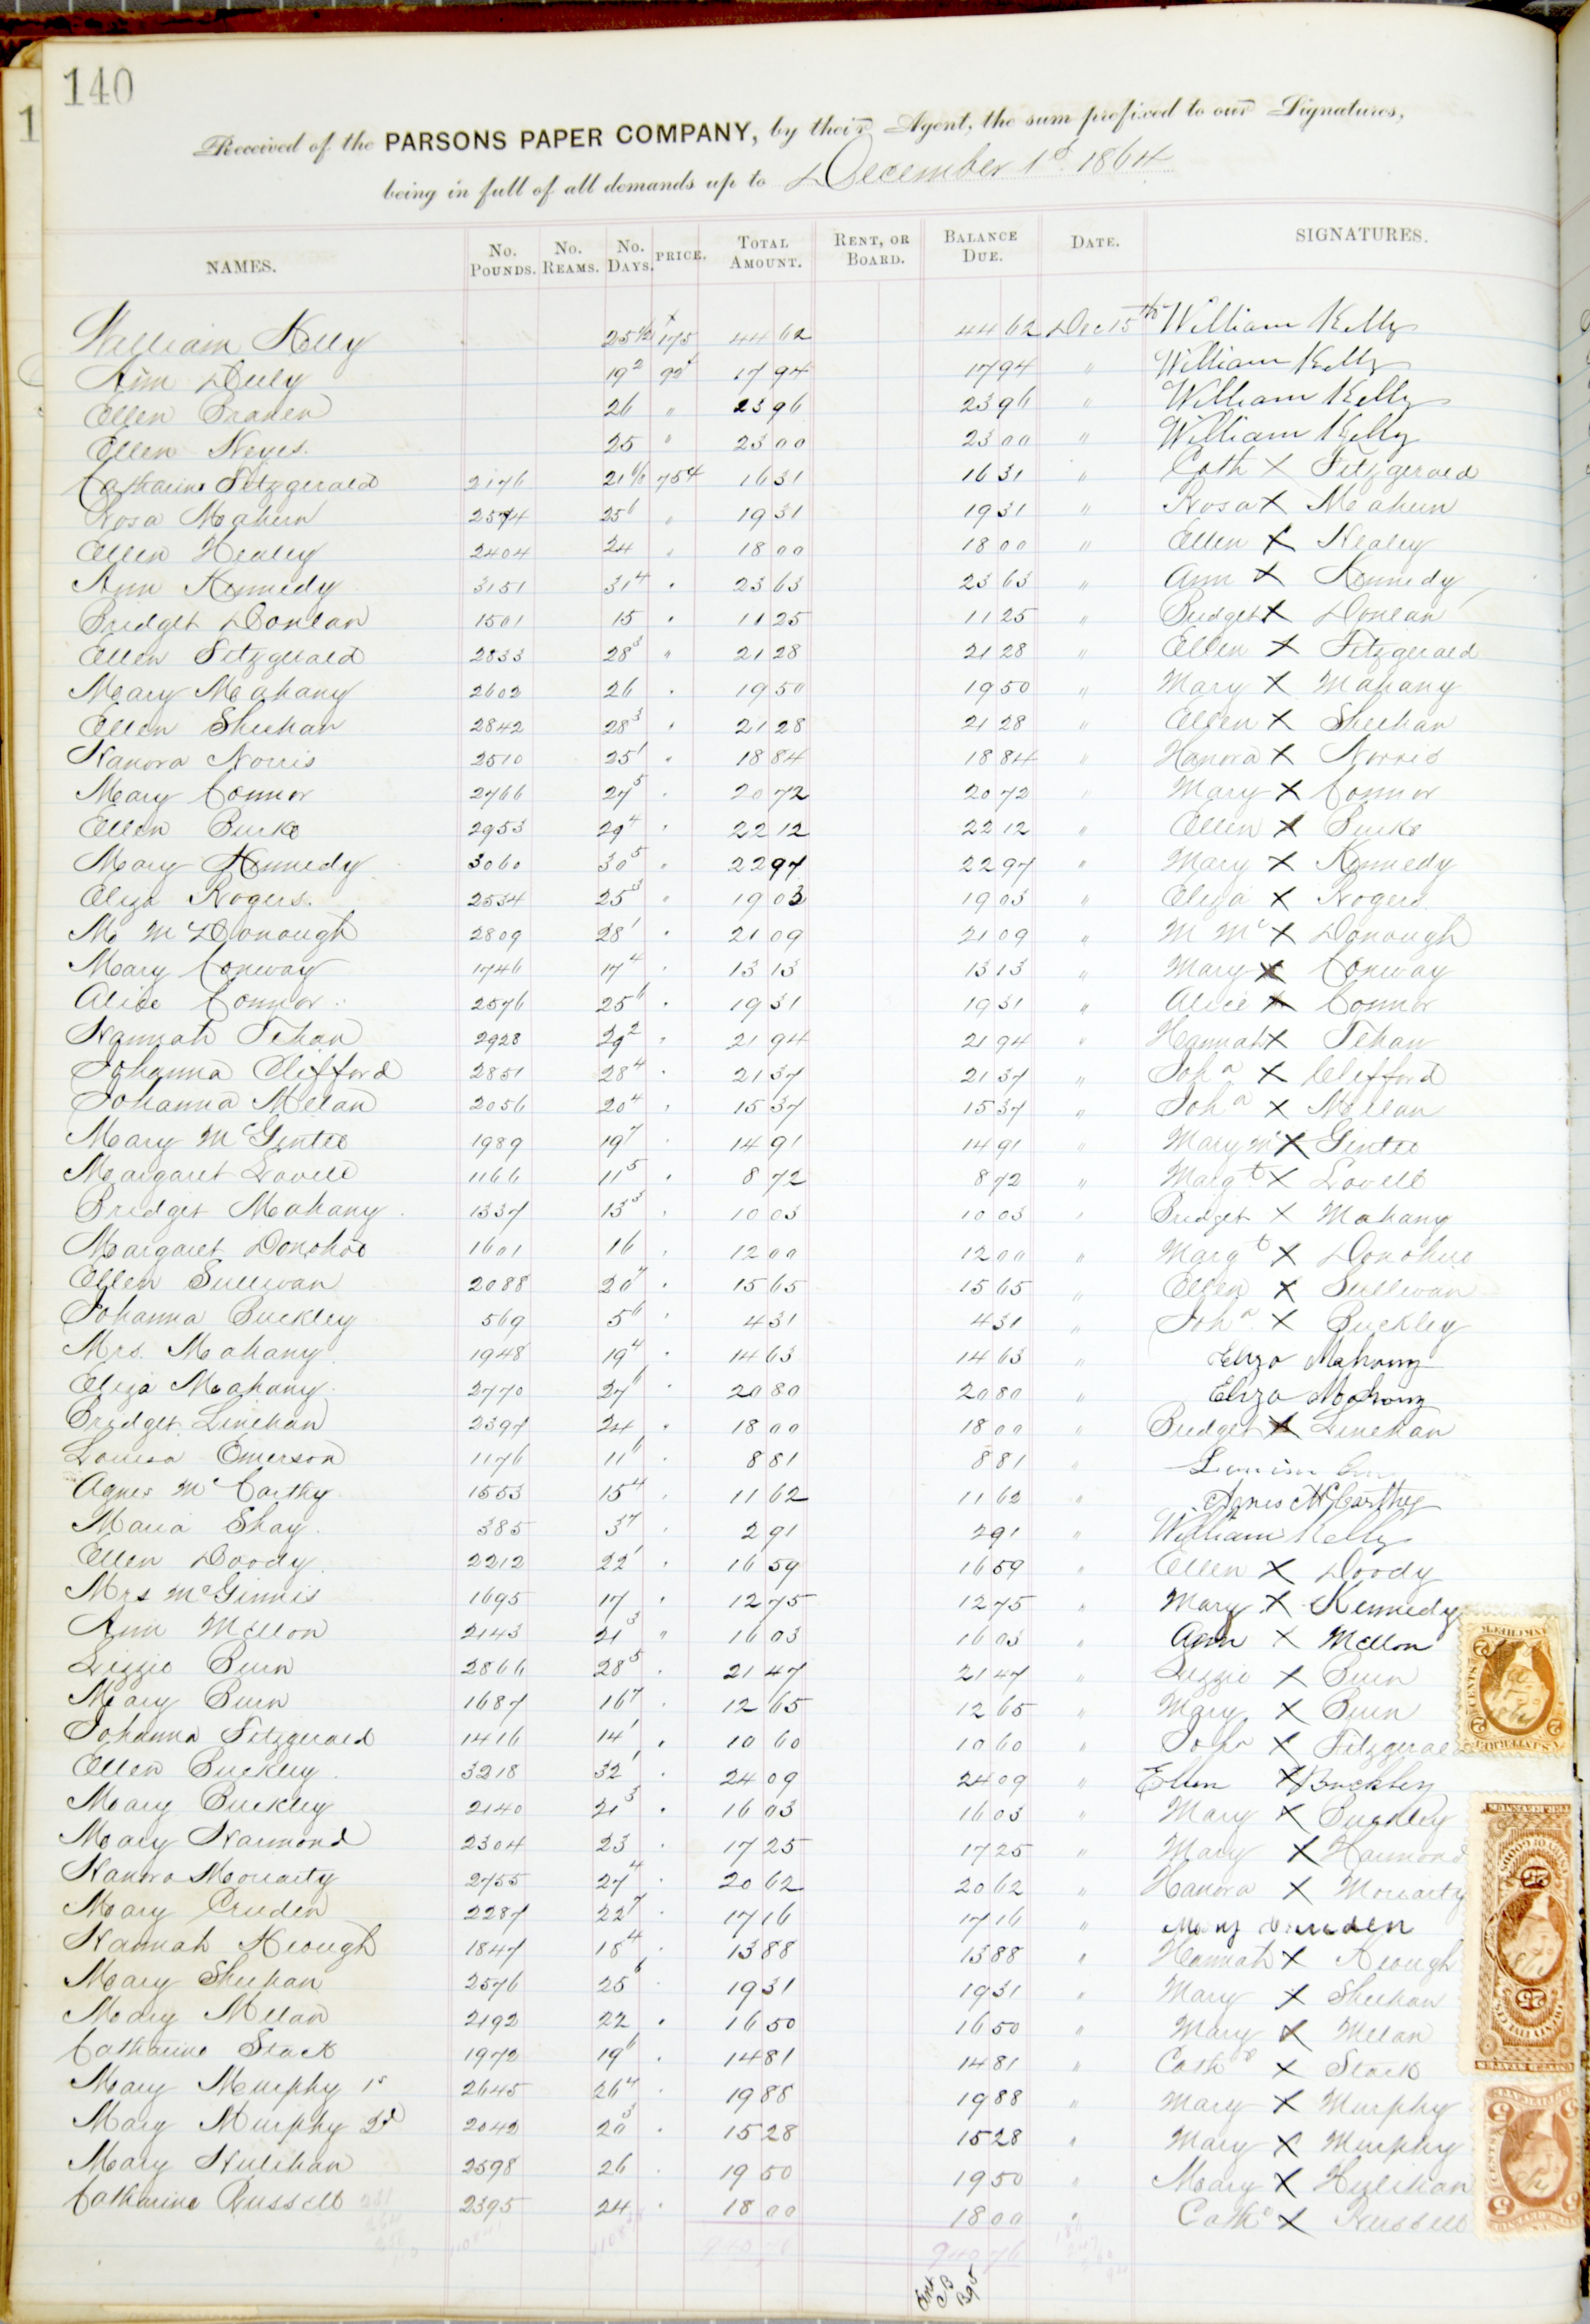 140
Received of the PARSONS PAPER COMPANY, by their Agent, the sum prefixed to our Signatures,
being in full of all demands up to December 1st 1864
NAMES. No. Pounds. No. Reams. No. Days. PRICE. Total Amount. Rent, or Board. Balance Due. Date. SIGNATURES.
William Kelly 25½ 175 44 62 44 62 Dec 15th William Kelly
Ann Duly 19² 92 17 94 17 94 " William Kelly
Ellen 26 " 23 96 23 96 " William Kelly
Ellen 25 " 23 00 23 00 " William Kelly
Catharine Fitzgerald 2176 75 16 31 16 31 " Cath X Fitzgerald
Rosa Mahern 2574 25⁶ " 19 31 19 31 " Rosa X Mahern
Ellen Healey 2404 24 " 18 00 18 00 " Ellen X Healey
Ann Kennedy 3151 31⁴ " 23 63 23 63 " Ann X Kennedy
Bridget Donlan 1501 15 " 11 25 11 25 " Bridget X Donlan
Ellen Fitzgerald 2833 28³ " 21 28 21 28 " Ellen X Fitzgerald
Mary Mahany 2602 26 " 19 50 19 50 " Mary X Mahany
Ellen Sheehan 2842 28³ " 21 28 21 28 " Ellen X Sheehan
Hanora Norris 2510 25¹ " 18 84 18 84 " Hanora X Norris
Mary Connor 2766 27⁵ " 20 72 20 72 " Mary X Connor
Ellen Burke 2953 29⁴ " 22 12 22 12 " Ellen X Burke
Mary Kennedy 3060 30⁵ " 22 97 22 97 " Mary X Kennedy
Eliza Rogers. 2534 25³ " 19 03 19 03 " Eliza X Rogers
M McDonough 2809 28¹ " 21 09 21 09 " M Mc X Donough
Mary Conway 1746 17⁴ " 13 13 13 13 " Mary X Conway
Alice Connor 2576 25⁶ " 19 31 19 31 " Alice X Connor
Hannah Tehan 2928 29² " 21 94 21 94 " Hannah X Tehan
Johanna Clifford 2851 28⁴ " 21 37 21 37 " Joha X Clifford
Johanna Melan 2056 20⁴ " 15 37 15 37 " Joha X Mellan
Mary McGintee 1989 19⁷ " 14 91 14 91 " Mary Mc X Gintee
Margaret Lovell 1166 11⁵ " 8 72 8 72 " Margt X Lovell
Bridget Mahany 1337 13³ " 10 03 10 03 " Bridget X Mahany
Margaret Donohoe 1601 16 " 12 00 12 00 " Margt X Donohue
Ellen Sullivan 2088 20⁷ " 15 65 15 65 " Ellen X Sullivan
Johanna Buckley 569 5⁶ " 4 31 4 31 " Joha X Buckley
Mrs. Mahany 1948 19⁴ " 14 63 14 63 " Eliza Mahony
Eliza Mahany 2770 27⁶ " 20 80 20 80 " Eliza Mahony
Bridget Linehan 2397 24 " 18 00 18 00 " Bridget X Linehan
Louisa Emerson 1176 11⁶ " 8 81 8 81 "
Agnes McCarthy 1553 15⁴ " 11 62 11 62 " Agnes McCarthey
Maria Shay 385 3⁷ " 2 91 2 91 " William Kelly
Ellen Doody 2212 22¹ " 16 59 16 59 " Ellen X Doody
Mrs McGinnis 1695 17 " 12 75 12 75 " Mary X Kennedy
Ann Mellon 2143 21³ " 16 03 16 03 " Ann X Mellon
Lizzie Burn 2866 28⁵ " 21 47 21 47 " Lizzie X Burn
Mary Burn 1687 16⁷ " 12 65 12 65 " Mary X Burn
Johanna Fitzgerald 1416 14¹ " 10 60 10 60 " Joha X Fitzgerald
Ellen Buckley 3218 32¹ " 24 09 24 09 " Ellen X Buckley
Mary Buckley 2140 21³ " 16 03 16 03 " Mary X Buckley
Mary Harmond 2304 23 " 17 25 17 25 " Mary X Harmond
Hanora Moriarty 2755 27⁴ " 20 62 20 62 " Hanora X Moriarty
Mary Cruden 2287 22⁷ " 17 16 17 16 " Mary Cruden
Hannah Keough 1847 18⁴ " 13 88 13 88 " Hannah X Keough
Mary Sheehan 2576 25⁶ " 19 31 19 31 " Mary X Sheehan
Mary Melan 2192 22 " 16 50 16 50 " Mary X Melan
Catharine Stack 1972 19⁶ " 14 81 14 81 " Cathe X Stack
Mary Murphy 1st 2645 26⁴ " 19 88 19 88 " Mary X Murphy
Mary Murphy 2d 2042 20³ " 15 28 15 28 " Mary X Murphy
Mary Hulihan 2598 26 " 19 50 19 50 " Mary X Hulihan
Catharine Russell 2395 24 " 18 00 18 00 " Cathe X Russell
940 76 940 76